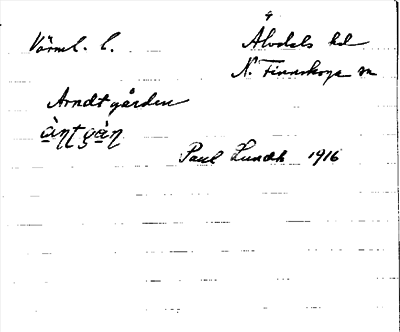 Värml. l. Älvdals hd
N. Finnskoga sn
Arndtgården
àṇt gàṇ
Paul Lundh 1916